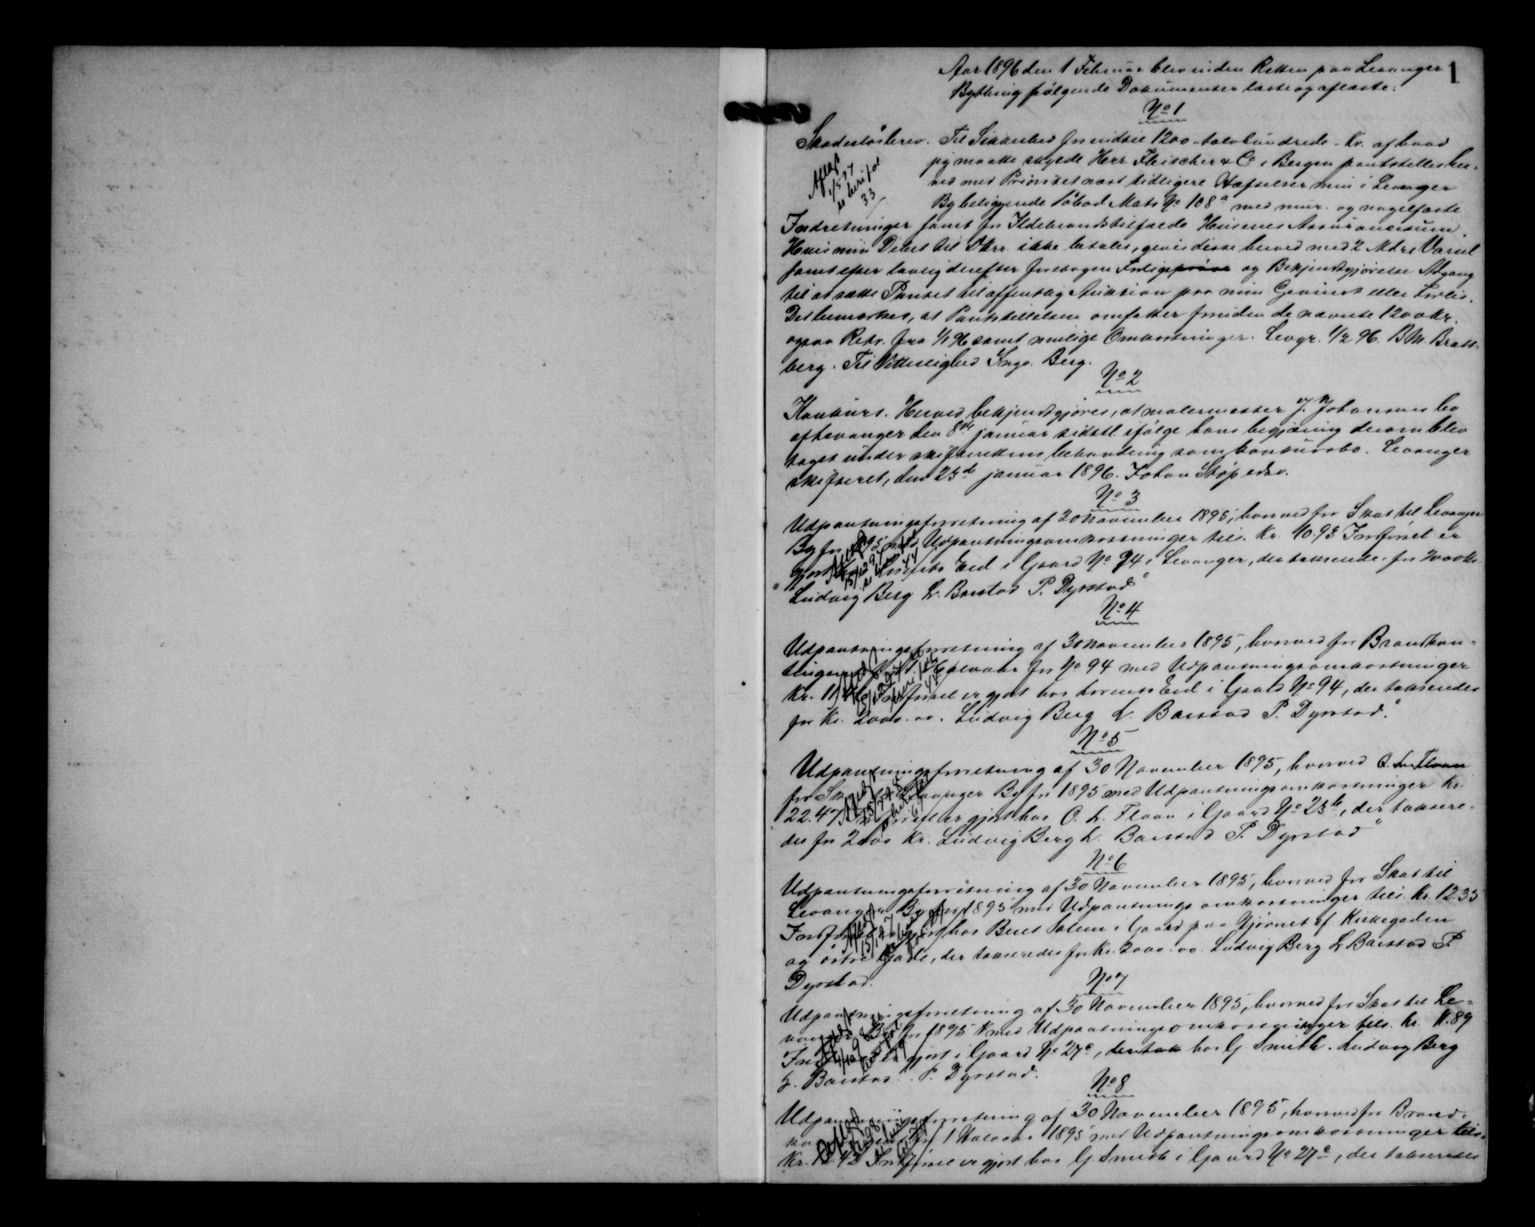 1
Aar 1896 den 1 Februar blev inden Retten paa Levanger
Bything følgende Dokumenter læste og aflæste:
No 1
Skadesløsbrev. Til Sikkerhed for indtil 1200 - tolvhundrede - Kr. af hvad
jeg maatte skylde Herr Fleischer & Co i Bergen pantstilles her-
ved med Prioritet næst tidligere Hæftelser min i Levanger
By beliggende Matr No 108a med mur- og nagelfaste
Indretninger samt for Ildebrandstilfælde Husenes Assurancesum.
Hvis min Debet til Hrr. ikke betales, gives disse herved med 2 Mdrs Varsel
samt efter lovlig derefter foretagen Forligs og Bekjendtgjørelse Adgang
til at sætte Pantet til offentlig Auktion paa min Gevinst eller Forlis.
Det bemærkes, at Pantstillelsen omfatter foruden de nævnte 1200 kr.
ogsaa Retr. fra 1/1 96 samt mulige Omkostninger. Levgr. 1/2 96. B M. Bratt-
berg. Til Vitterlighed Inga Berg.
Aflæst
33
No 2
Konkurs. Herved bekjendtgjøres, at malermester J. Johansens bo
af Levanger den 8de januar sidstl. ifølge hans begjæring derom blev
taget under skifterettens behandling som konkursbo. Levanger
skifteret, den 25de januar 1896. Johan
No 3
Udpantningsforretning af 30 November 1895, hvorved for Skat til Levanger
By for 1895 med Udpantningsomkostninger tils. Kr. 10.93 Indførsel er
gjort Eid i Gaard No 94 i Levanger, der taxeredes for 2000 Kr.
Ludvig Berg L. Barstad P. Dyrstad
Aflæst
44
No 4
Udpantningsforretning af 30 November 1895, hvorved for Brandkon-
tingent Halvaar for No 94 med Udpantningsomkostninger
Kr. Indførsel er gjort hos Eid i Gaard No 94, der taxeredes
for Kr. 2000.00. Ludvig Berg L. Barstad P. Dyrstad.
Aflæst
44
No 5
Udpantningsforretning af 30 November 1895, hvorved O. L. Floan
for Skat Levanger By for 1895 med Udpantningsomkostninger Kr.
22.47 Indførsel er gjort hos O. L. Floan i Gaard No 25b, der taxere-
des for 2000 Kr. Ludvig Berg L. Barstad P. Dyrstad
Aflæst
No 6
Udpantningsforretning af 30 November 1895, hvorved for Skat til
Levanger By for 1895 med Udpantningsomkostninger tils. Kr. 12.35
Indførsel er gjort hos Beret Salem i Gaard paa Hjørnet af Kirkegaden
og østre Gade, der taxeredes for Kr. 2000.00. Ludvig Berg L Barstad P
Dyrstad.
Aflæst
No 7
Udpantningsforretning af 30 November 1895, hvorved for Skat til Le-
vanger By for 1895 med Udpantningsomkostninger tils. Kr. 11.89
Indførsel er gjort i Gaard No 27c, hos G Smith. Ludvig Berg
L. Barstad. P. Dyrstad.
Aflæst
No 8
Udpantningsforretning af 30 November 1895, hvorved for Brand-
1 Halvaar 1895 med Udpantningsomkostninger tils.
Kr. Indførsel er gjort hos G Smith i Gaard No 27c, der taxeredes
Aflæst